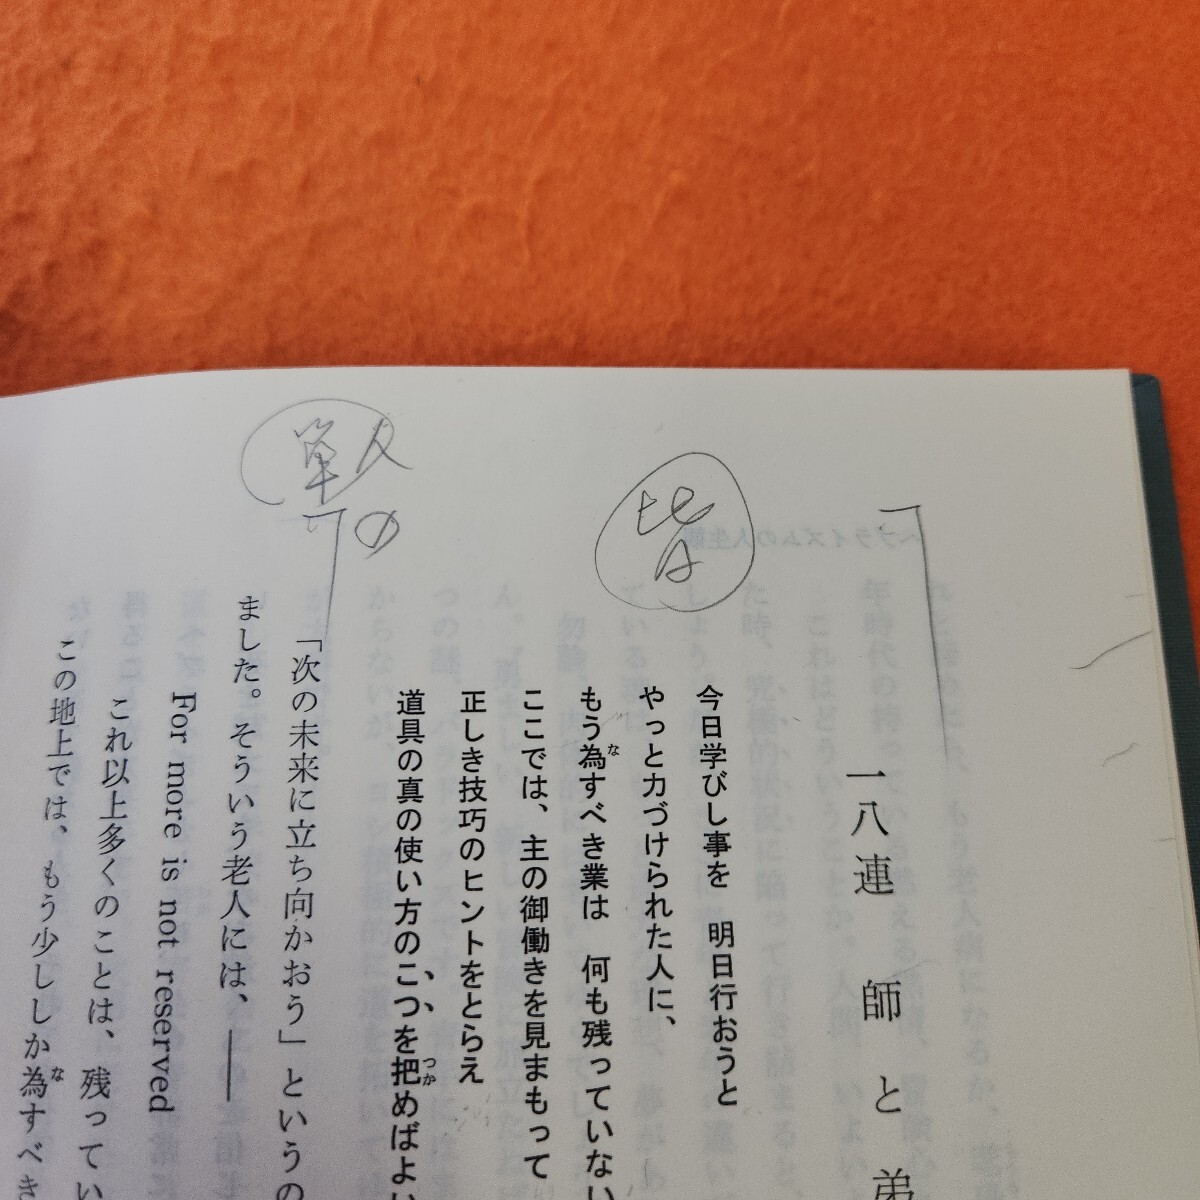 皆
の
一八連　師と弟
今日学びし事を　明日行おうと
やっと力づけられた人に、
もう為すべき業は　何も残っていない
ここでは、主の御働きを見まもって
正しき技巧のヒントをとらえ
道具の真の使い方のこつを把めばよい
「次の未来に立ち向かおう」というの
ました。そういう老人には、――
For more is not reserved
これ以上多くのことは、残ってい
この地上では、もう少ししか為すべき